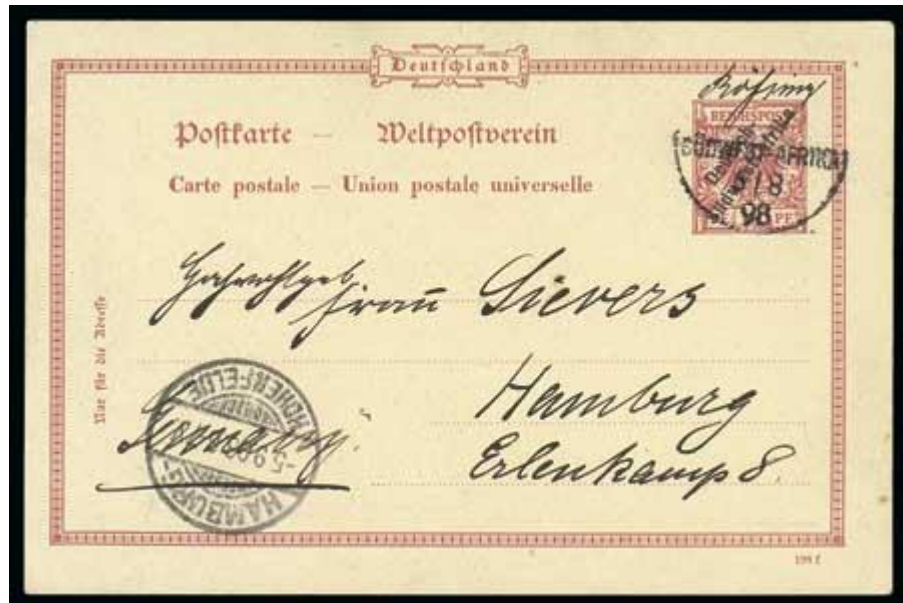 Deutschland
Postkarte — Weltpostverein
Carte postale — Union postale universelle
Rössing
REICHSPOST
Deutsch-
Südwest-Afrika
AFRIKA
/8
98
PF
Nur für die Adresse
Frau Sievers
Hamburg
Erlenkamp 8.
Germany.
HAMBURG-
HOHENFELDE
-5.9.